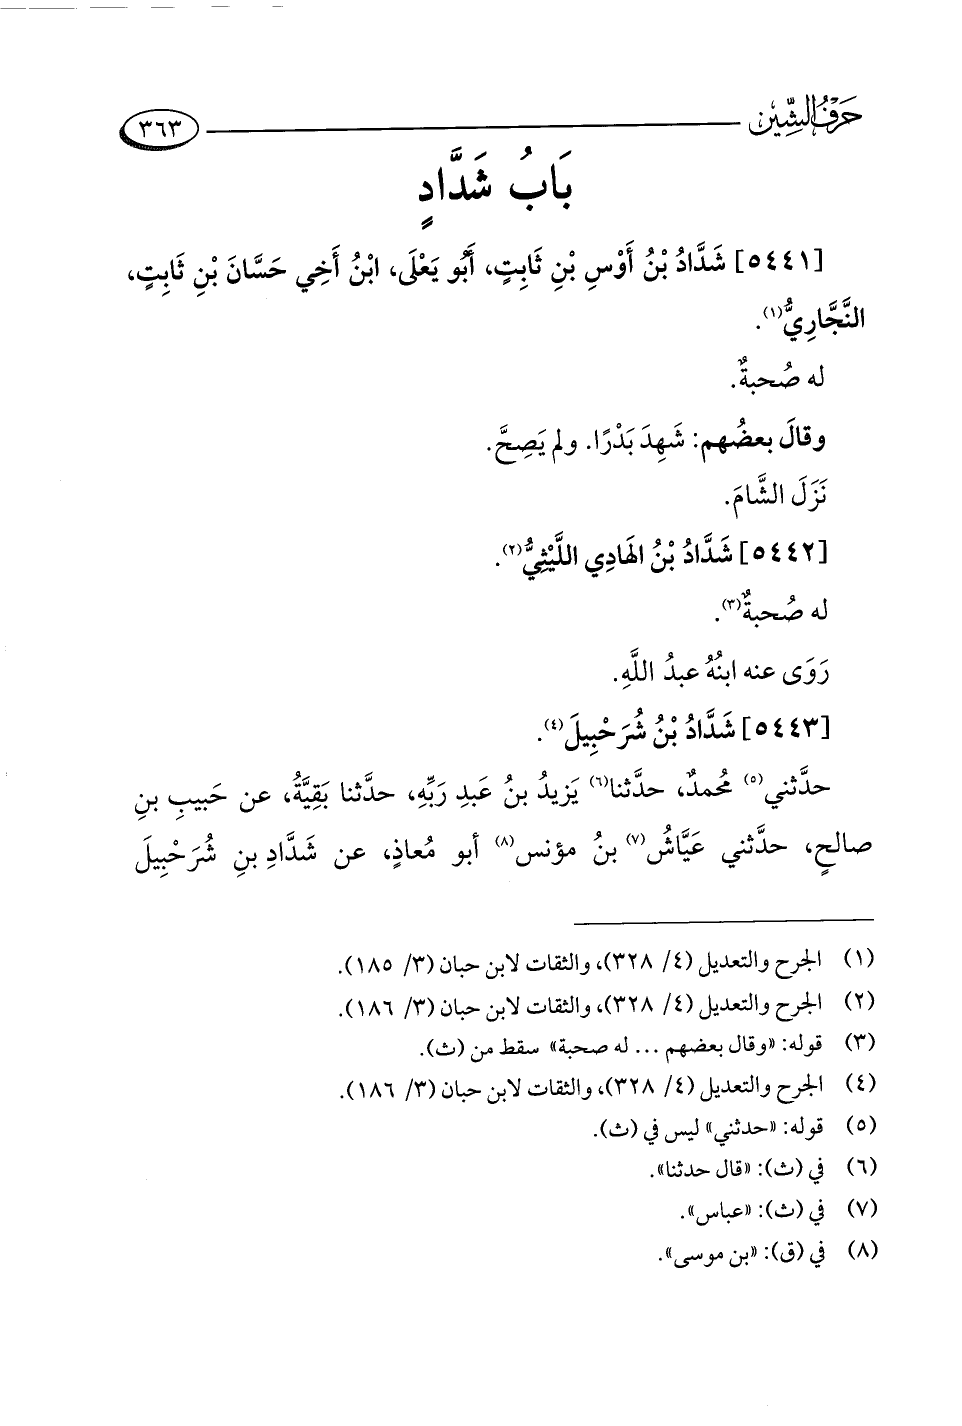 حَرْفُ الشِّين
٣٦٣
بَابُ شَدَّادٍ
[٥٤٤١] شَدَّادُ بْنُ أَوْسِ بْنِ ثَابِتٍ، أَبُو يَعْلَى، ابْنُ أَخِي حَسَّانَ بْنِ ثَابِتٍ،
النَّجَّارِيُّ(١).
له صُحبةٌ.
وقالَ بعضُهم: شَهِدَ بَدْرًا. ولم يَصِحَّ.
نَزَلَ الشَّامَ.
[٥٤٤٢] شَدَّادُ بْنُ الهَادِي اللَّيْثِيُّ(٢).
له صُحبةٌ(٣).
رَوَى عنه ابنُهُ عبدُ اللَّهِ.
[٥٤٤٣] شَدَّادُ بْنُ شُرَحْبِيلَ(٤).
حدَّثني(٥) مُحمدٌ، حدَّثنا(٦) يَزيدُ بنُ عَبدِ رَبِّهِ، حدَّثنا بَقِيَّةُ، عن حَبيبِ بنِ
صالحٍ، حدَّثني عَيَّاشُ(٧) بنُ مؤنس(٨) أبو مُعاذٍ، عن شَدَّادِ بنِ شُرَحْبِيلَ
(١) الجرح والتعديل (٤/ ٣٢٨)، والثقات لابن حبان (٣/ ١٨٥).
(٢) الجرح والتعديل (٤/ ٣٢٨)، والثقات لابن حبان (٣/ ١٨٦).
(٣) قوله: «وقال بعضهم ... له صحبة» سقط من (ث).
(٤) الجرح والتعديل (٤/ ٣٢٨)، والثقات لابن حبان (٣/ ١٨٦).
(٥) قوله: «حدثني» ليس في (ث).
(٦) في (ث): «قال حدثنا».
(٧) في (ث): «عباس».
(٨) في (ق): «بن موسى».